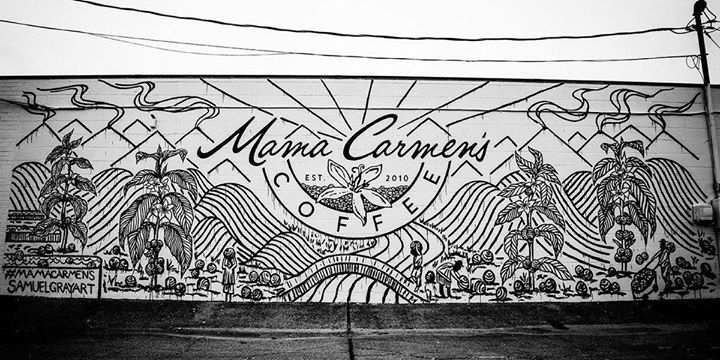 Mama Carmen's
EST. 2010
COFFEE
#MAMACARMENS
SAMUELGRAYART